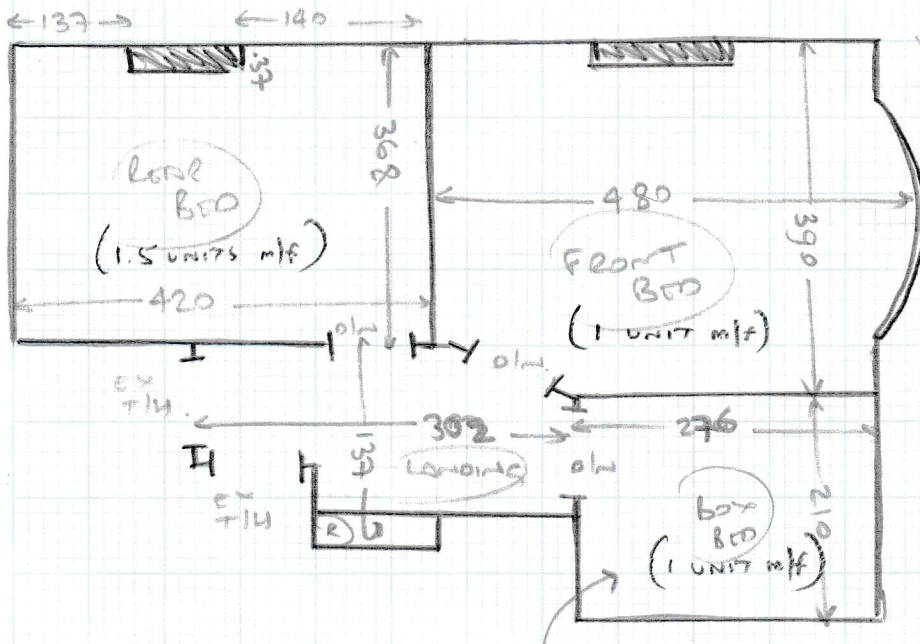 137
140
37
368
REAR
BED
(1.5 UNITS m/f)
420
480
390
FRONT
BED
(1 UNIT m/f)
O/N
O/N
EX
T/H
302
276
137
LANDING
O/N
EX
T/H
R
210
BOX
BED
(1 UNIT m/f)